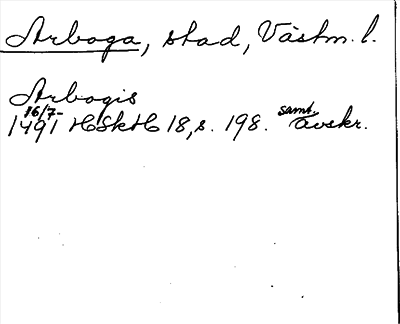 Arboga, stad, Västm. l.
Arbogis
16/7
1491 HSkH 18, s. 198. samt. avskr.